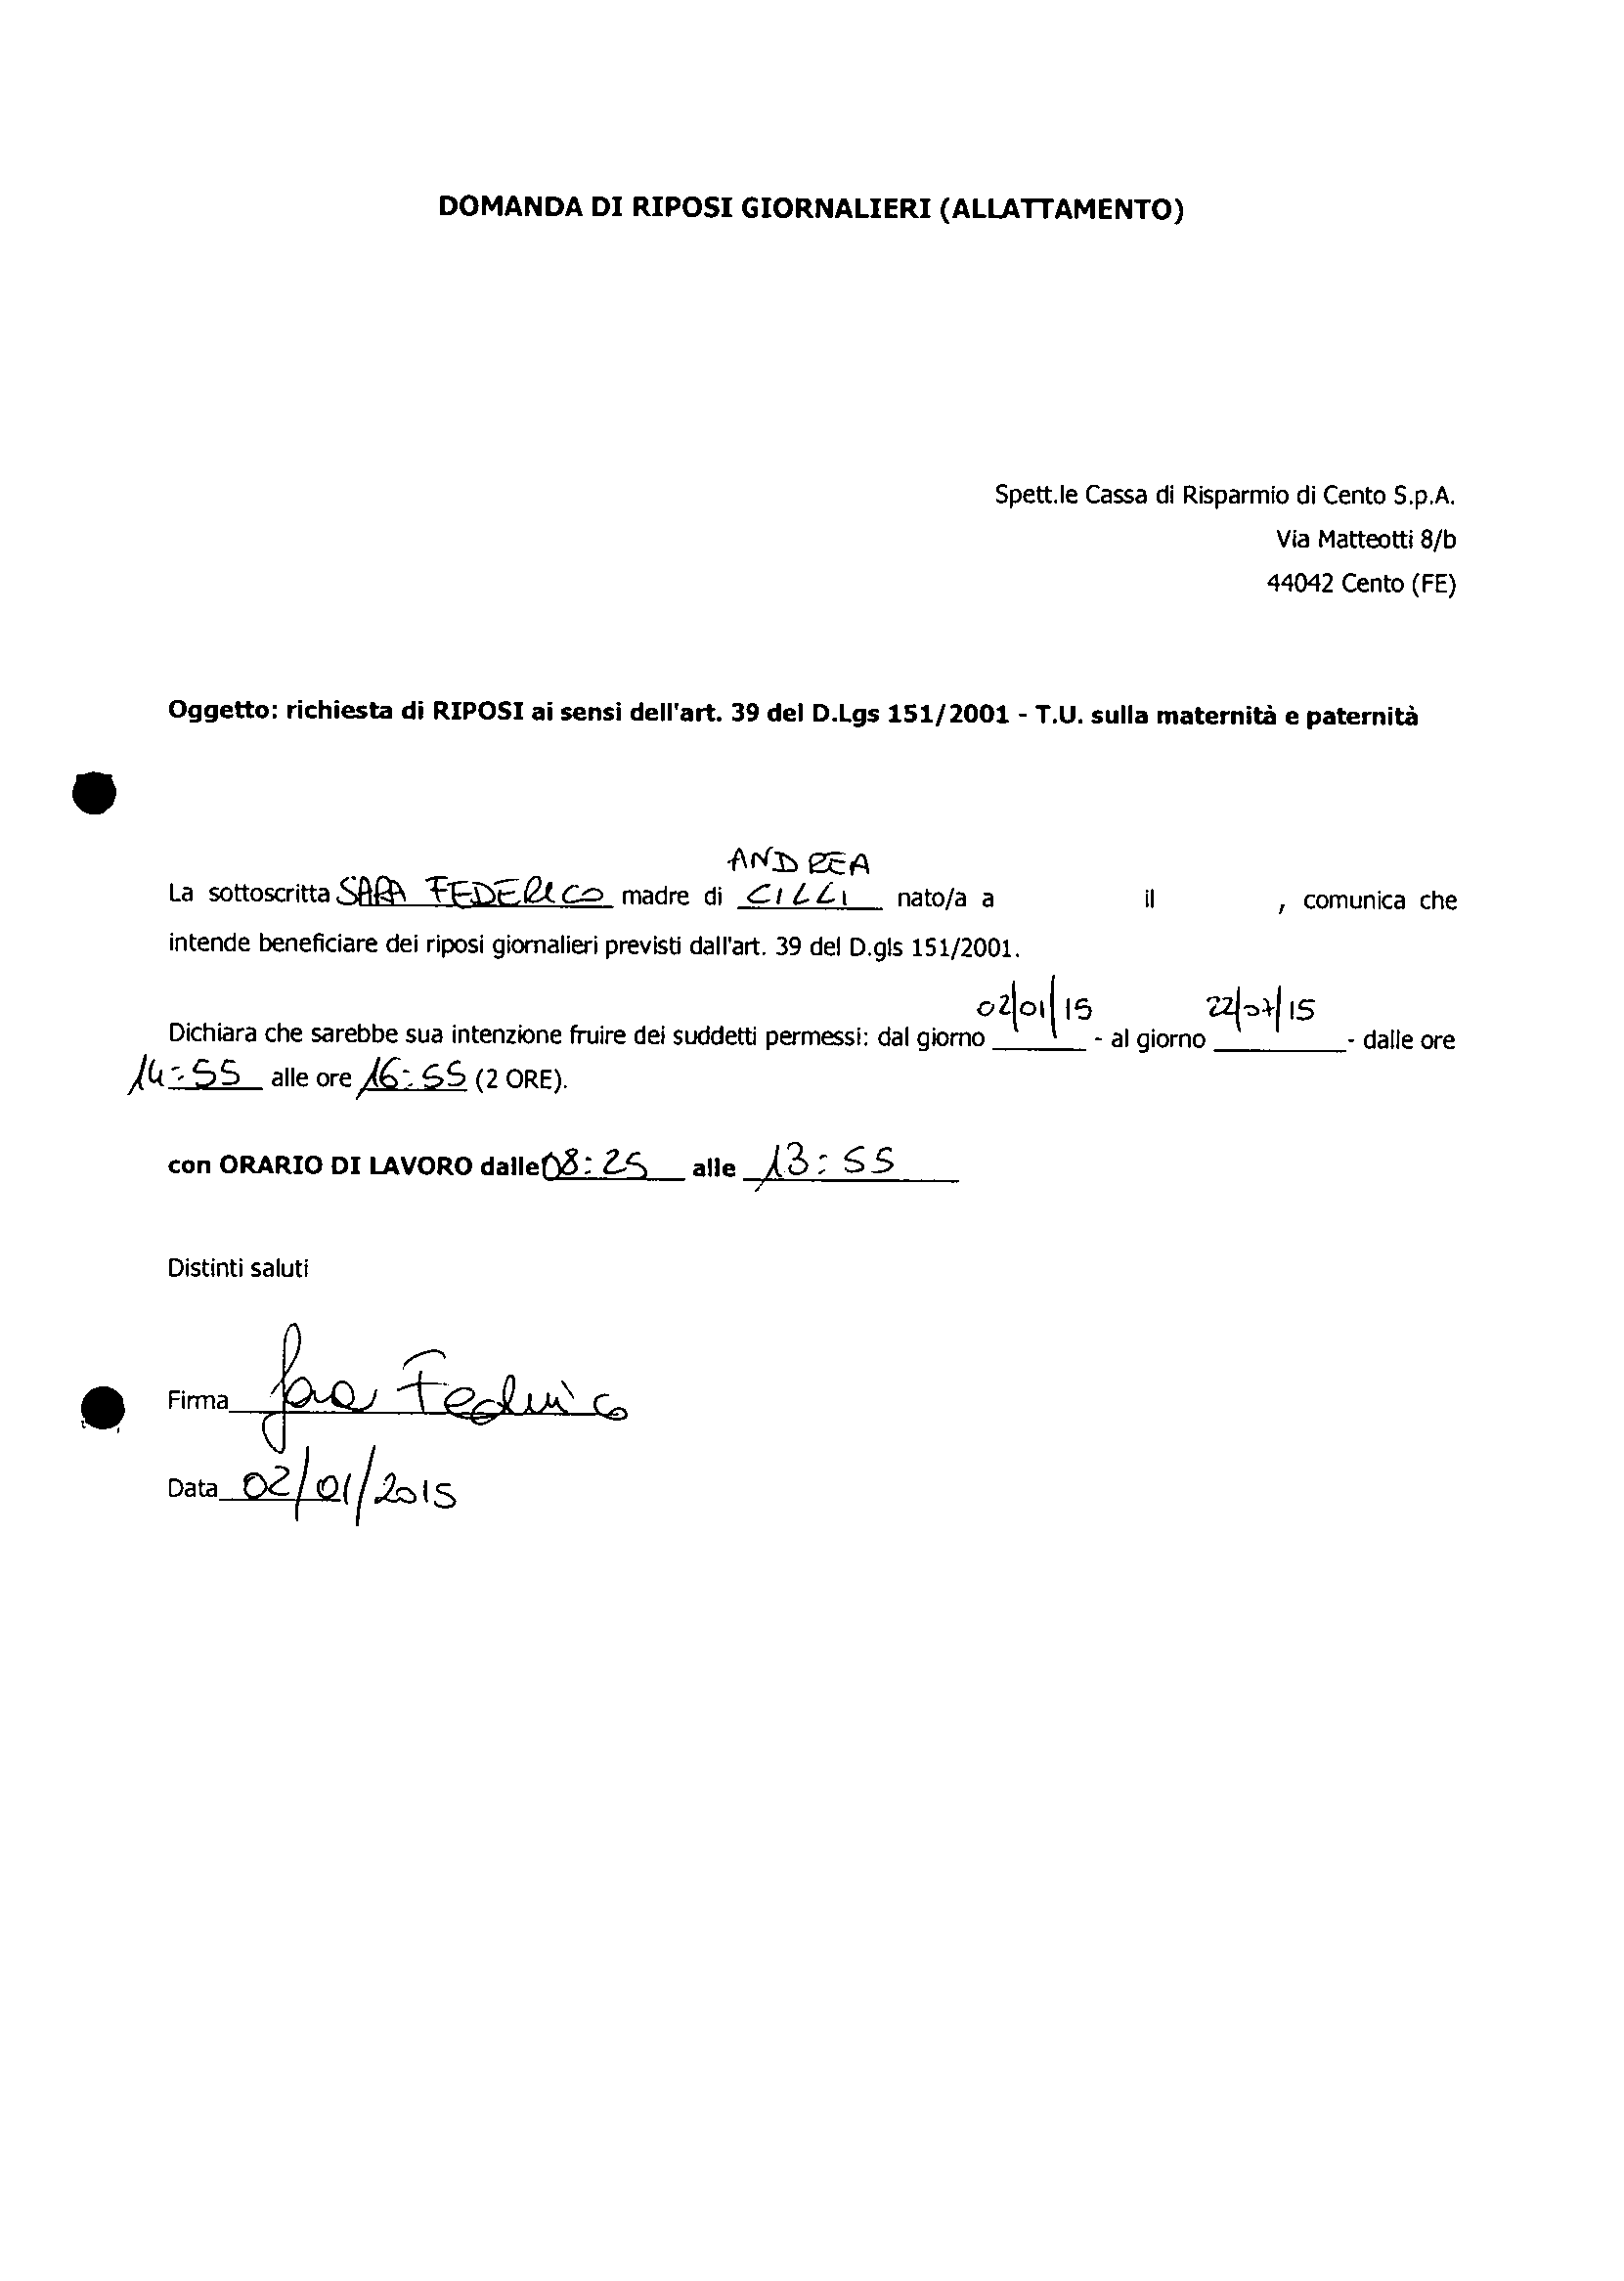 DOMANDA DI RIPOSI GIORNALIERI (ALLATTAMENTO)
Spett.le Cassa di Risparmio di Cento S.p.A.
Via Matteotti 8/b
44042 Cento (FE)
Oggetto: richiesta di RIPOSI ai sensi dell'art. 39 del D.Lgs 151/2001 - T.U. sulla maternità e paternità
ANDREA
La sottoscritta SARA FEDERICO madre di CILLI nato/a a il , comunica che
intende beneficiare dei riposi giornalieri previsti dall'art. 39 del D.gls 151/2001.
02/01/15 22/07/15
Dichiara che sarebbe sua intenzione fruire dei suddetti permessi: dal giorno - al giorno - dalle ore
14:55 alle ore 16:55 (2 ORE).
con ORARIO DI LAVORO dalle 08:25 alle 13:55
Distinti saluti
Firma Sara Federico
Data 02/01/2015